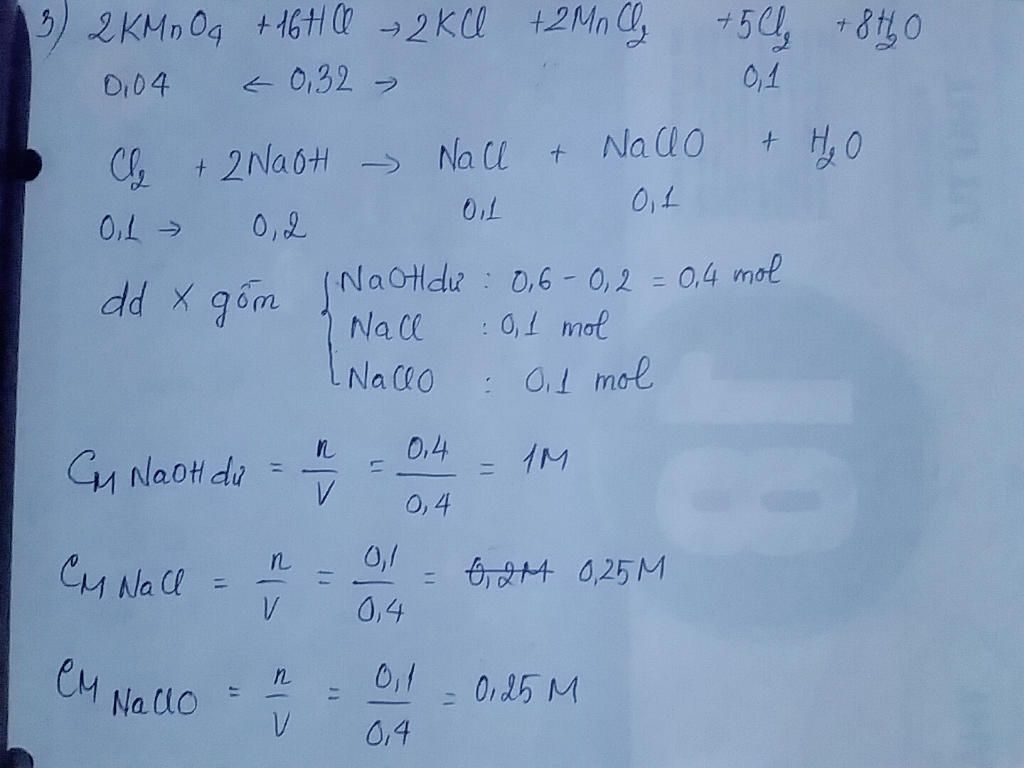 3) 2KMnO4 +16HCl →2KCl +2MnCl2 +5Cl2 +8H2O
0,04 ← 0,32 → 0,1
Cl2 + 2NaOH → NaCl + NaClO + H2O
0,1 → 0,2 0,1 0,1
dd X gồm { NaOH dư : 0,6 - 0,2 = 0,4 mol
NaCl : 0,1 mol
NaClO : 0,1 mol
CM NaOH dư = n/V = 0,4/0,4 = 1M
CM NaCl = n/V = 0,1/0,4 = 0,2M 0,25M
CM NaClO = n/V = 0,1/0,4 = 0,25 M